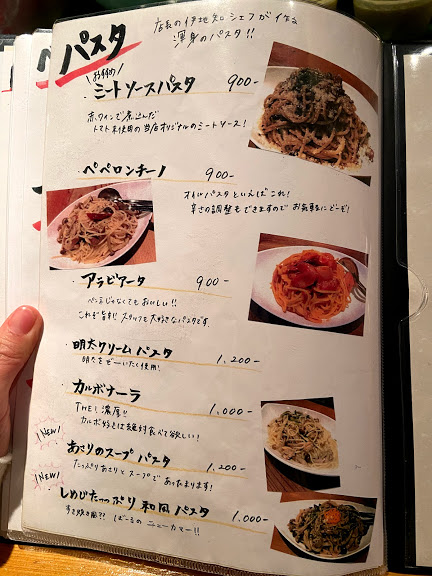 パスタ
店長の伊地知シェフが作る
渾身のパスタ!!
お勧め
・ミートソースパスタ 900-
赤ワインで煮込んだ
トマト未使用の当店オリジナルのミートソース!
・ペペロンチーノ 900-
オイルパスタといえばこれ!
辛さの調整もできますので お気軽にどーぞ!
・アラビアータ 900-
ペンネじゃなくてもおいしい!!
これぞ旨辛!スタッフも大好きなパスタです
・明太クリームパスタ 1,200-
明太をぜーいたく使用!
・カルボナーラ 1,000-
THE!濃厚!!
カルボ好きは絶対食べて欲しい!
NEW!
・あさりのスープパスタ 1,200-
たっぷりあさりとスープであったまります!
NEW!
・しめじたっぷり和風パスタ 1,000-
すき焼き風??
ニューカマー!!